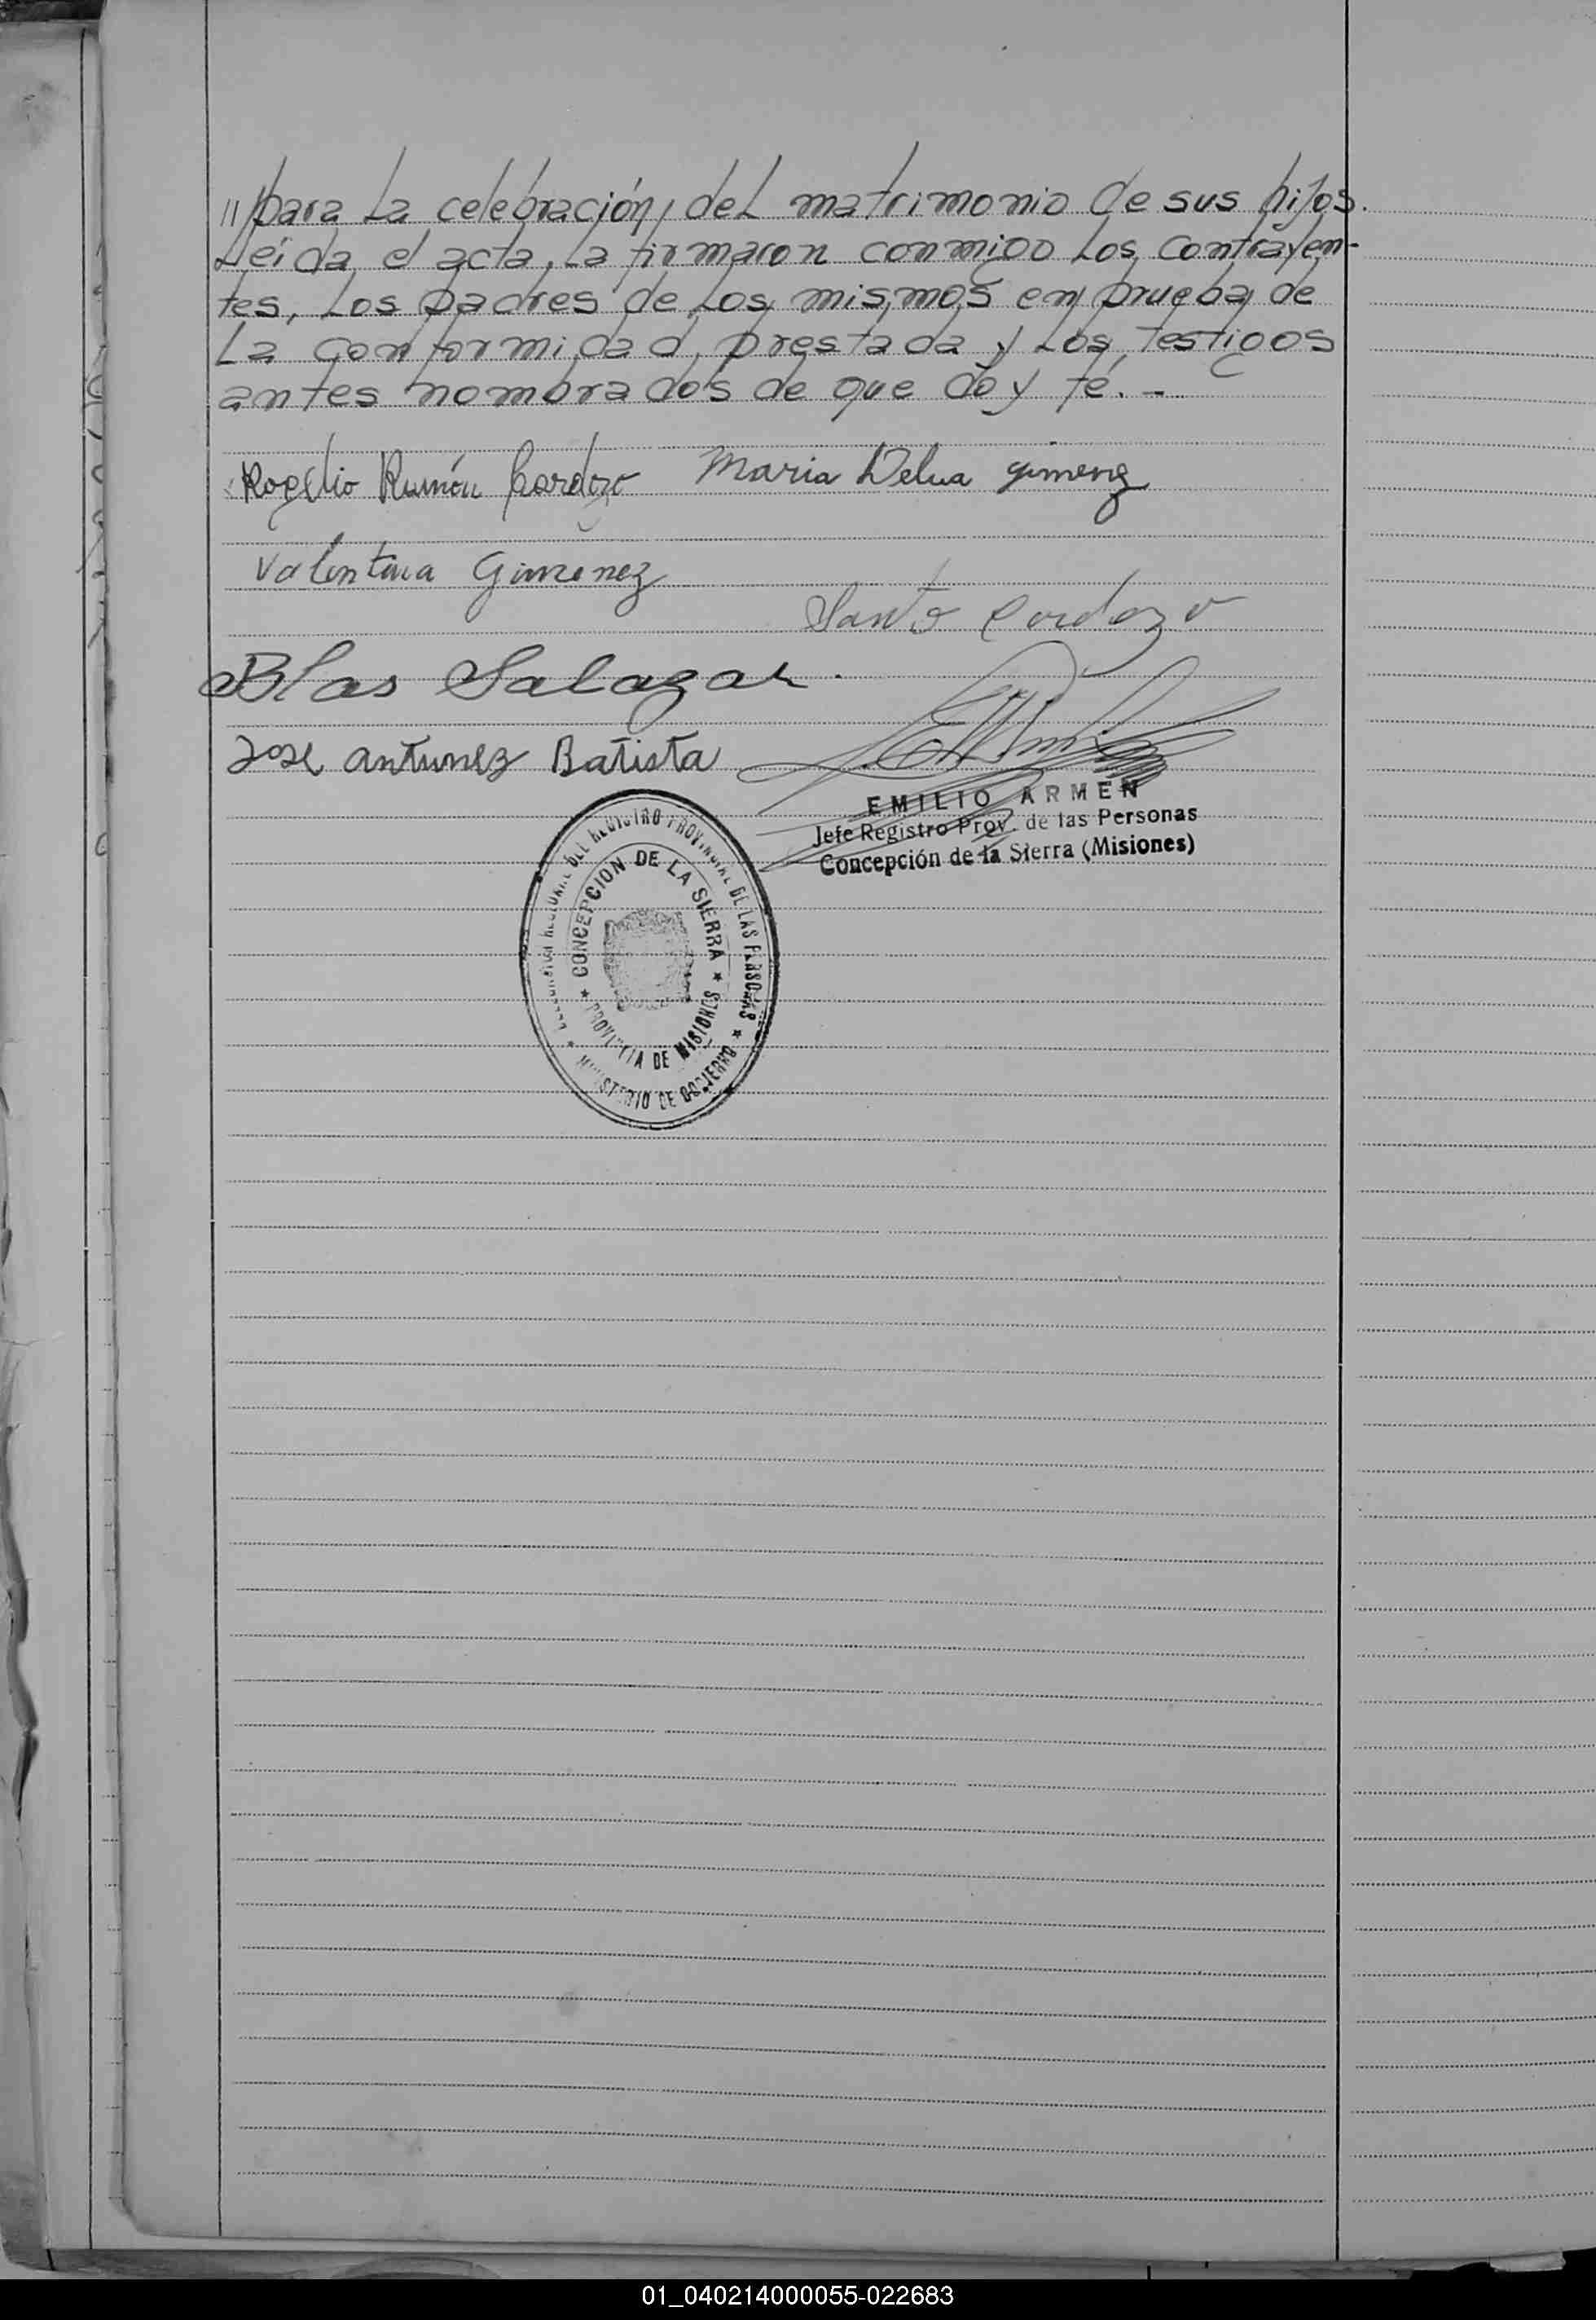 //para La celebración, del matrimonio de sus hijos.
Leída el acta, la firmaron conmigo los contrayen-
tes, los padres de los mismos en prueba de
La conformidad prestada y Los Testigos
antes nombrados de que doy fé. -
Rogelio Ramón Cardozo Maria Delia gimenez
Valentina Gimenez
Santo Cardozo
Blas Salazar.
Jose antunez Batista
EMILIO ARMEN
Jefe Registro Prov. de las Personas
Concepción de la Sierra (Misiones)
DEL REGISTRO PROVINCIAL DE LAS PERSONAS
★ MINISTERIO DE GOBIERNO ★
CONCEPCION DE LA SIERRA
★ PROVINCIA DE MISIONES ★
01_040214000055-022683